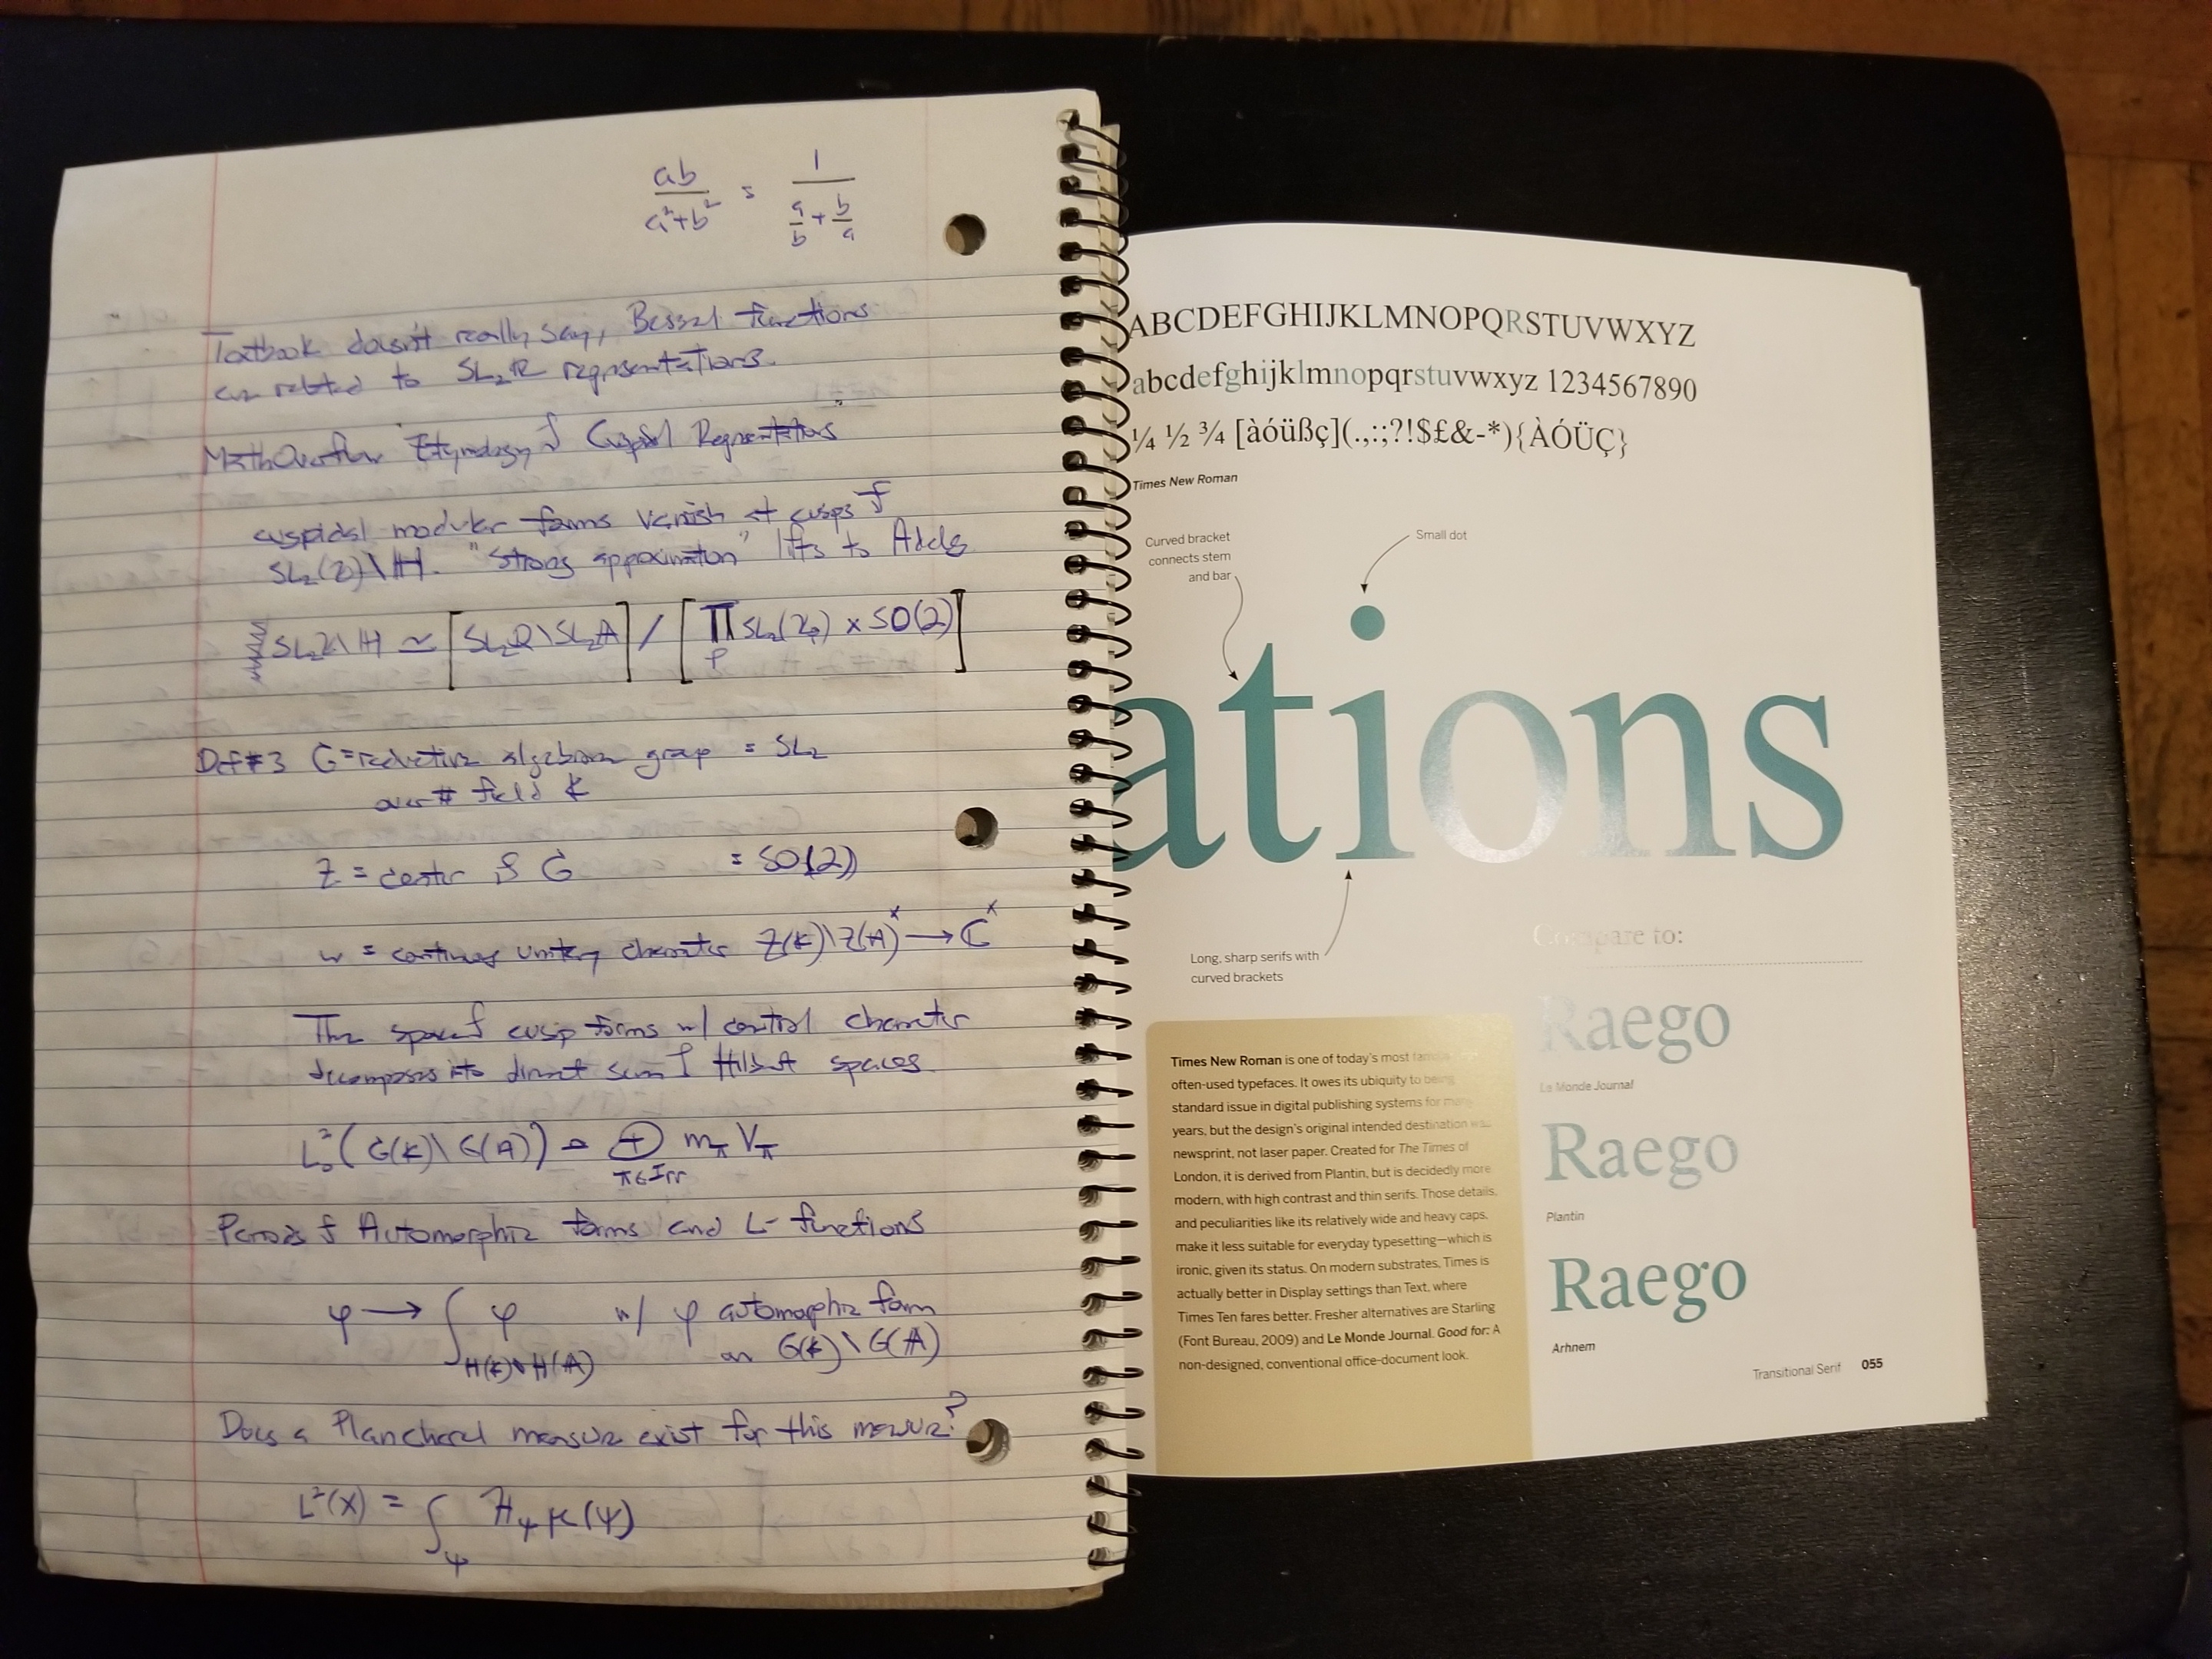 ab / a²+b² = 1 / (a/b + b/a)
Textbook doesn't really say, Bessel functions
are related to SL₂ℝ representations.
MathOverflow Etymology of Cuspidal Representations
cuspidal modular forms vanish at cusps of
SL₂(ℤ)\ℍ. "strong approximation" lifts to Adeles
SL₂ℤ\ℍ ≃ [SL₂ℚ\SL₂𝔸] / [∏_p SL₂(ℤ_p) × SO(2)]
Def #3 G = reductive algebraic group = SL₂
over # field k
Z = center of G = SO(2)
w = continuous unitary character Z(k)\Z(𝔸)^× → ℂ^×
The space of cusp forms w/ central character
decomposes into direct sum of Hilbert spaces
L₀²(G(k)\G(𝔸)) = ⊕_{π∈Irr} m_π V_π
Periods of Automorphic forms and L-functions
φ → ∫_{H(k)\H(𝔸)} φ w/ φ automorphic form
on G(k)\G(𝔸)
Does a Plancherel measure exist for this measure?
L²(X) = ∫_ψ H_ψ μ(ψ)
ABCDEFGHIJKLMNOPQRSTUVWXYZ
abcdefghijklmnopqrstuvwxyz 1234567890
¼ ½ ¾ [àóüßç](.,:;?!$£&-*){ÀÓÜÇ}
Times New Roman
Curved bracket
connects stem
and bar
Small dot
ations
Long, sharp serifs with
curved brackets
Times New Roman is one of today's most
often-used typefaces. It owes its ubiquity to being
standard issue in digital publishing systems for many
years, but the design's original intended destination was
newsprint, not laser paper. Created for The Times of
London, it is derived from Plantin, but is decidedly more
modern, with high contrast and thin serifs. Those details,
and peculiarities like its relatively wide and heavy caps,
make it less suitable for everyday typesetting—which is
ironic, given its status. On modern substrates, Times is
actually better in Display settings than Text, where
Times Ten fares better. Fresher alternatives are Starling
(Font Bureau, 2009) and Le Monde Journal. Good for: A
non-designed, conventional office-document look.
Compare to:
Raego
Le Monde Journal
Raego
Plantin
Raego
Arhnem
Transitional Serif 055